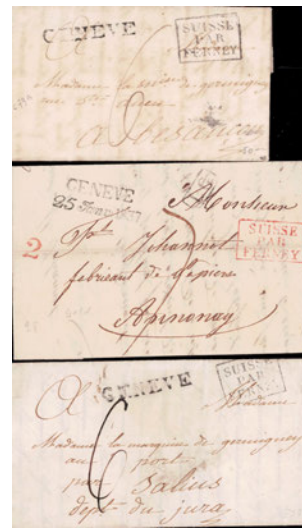 GENEVE
SUISSE
PAR
FERNEY
6
Madame la
a Besançon
GENEVE
25 Janv 1837
Monsieur
2
Johannot
SUISSE
PAR
FERNEY
fabricant de papiers
Annonay
GENEVE
SUISSE
PAR
A
Madame
6
Madame la marquise de germigney
au port
par Salins
dept du jura